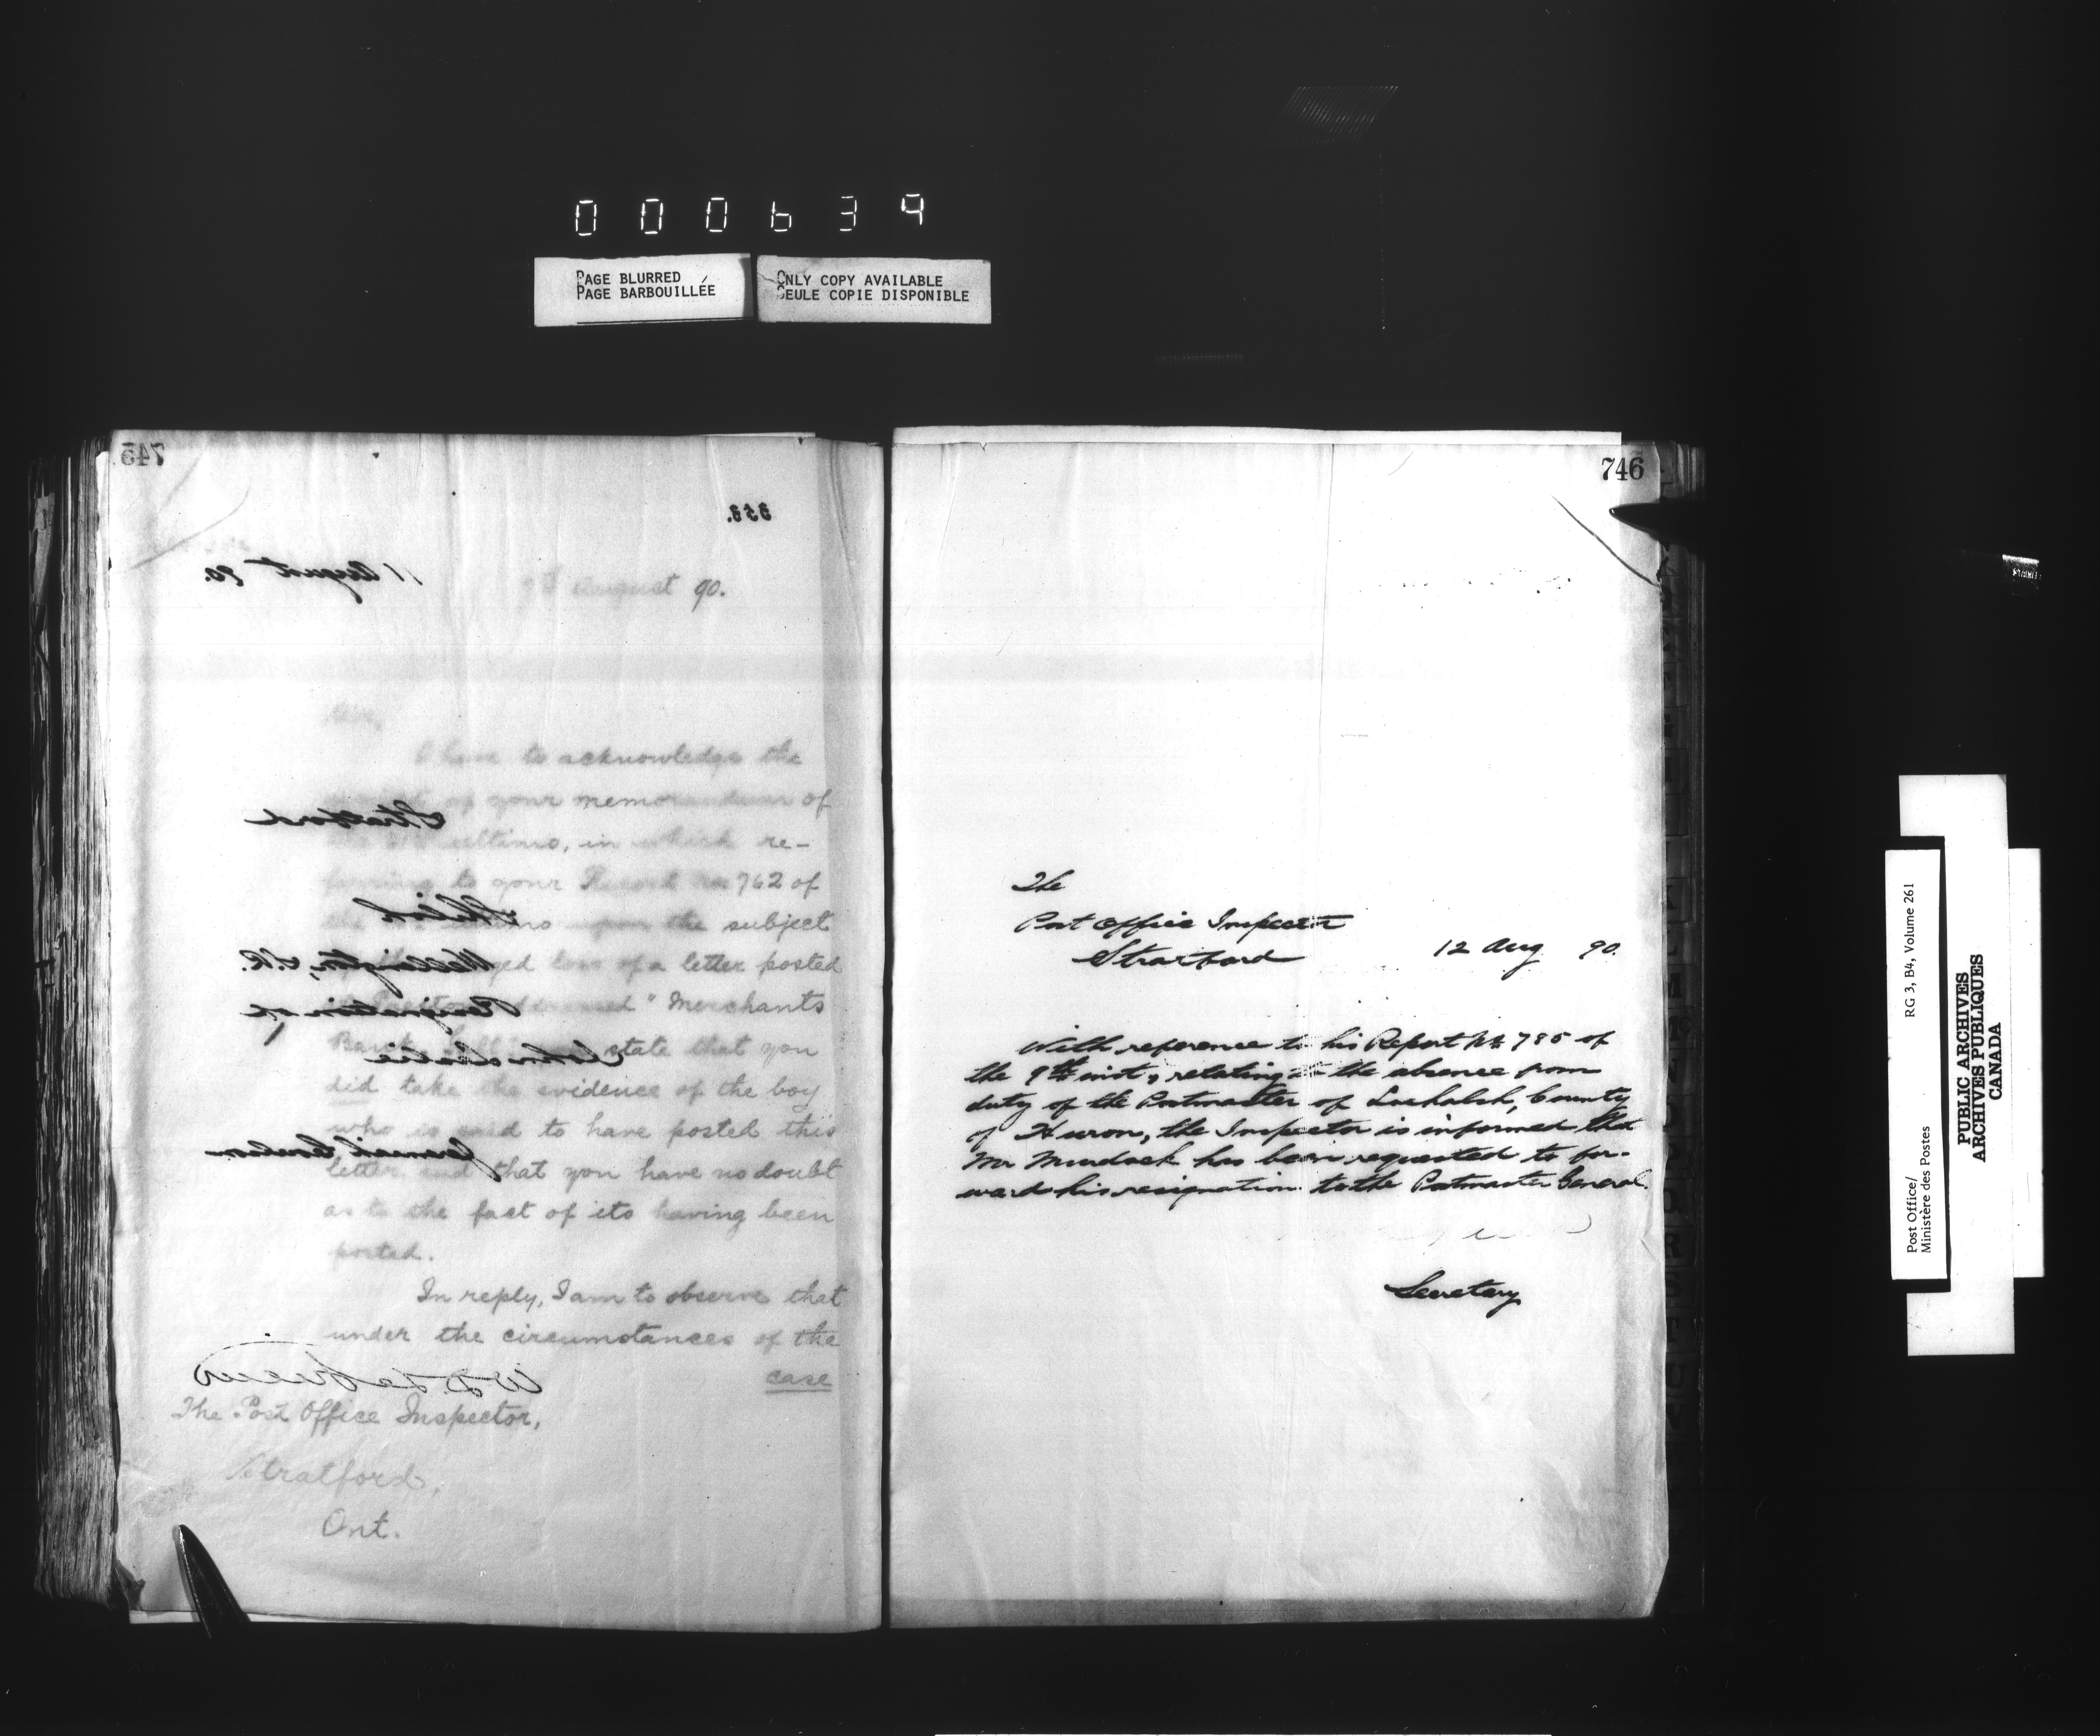 000639
PAGE BLURRED
PAGE BARBOUILLÉE
ONLY COPY AVAILABLE
SEULE COPIE DISPONIBLE
745
353.
11 August 90.
9th August 90.
Sir,
I have to acknowledge the
of your memorandum of
ultimo, in which re-
ferring to your Record No 762 of
upon the subject
loss of a letter posted
"Merchants
Bank state that you
did take the evidence of the boy
who is said to have posted this
letter and that you have no doubt
as to the fact of its having been
posted.
In reply, I am to observe that
under the circumstances of the
case
The Post Office Inspector,
Stratford,
Ont.
Stratford
Wellington, S.R.
Resignation of
John Leslie
Jeremiah
746
The
Post Office Inspector
Stratford
12 Aug 90.
With reference to his Report No 785 of
the 9th inst, relating to the absence from
duty of the Postmaster of Lochalsh, County
of Huron, the Inspector is informed that
Mr Murdock has been requested to for-
ward his resignation to the Postmaster General.
Secretary
Post Office/
Ministère des Postes
RG 3, B4, Volume 261
PUBLIC ARCHIVES
ARCHIVES PUBLIQUES
CANADA